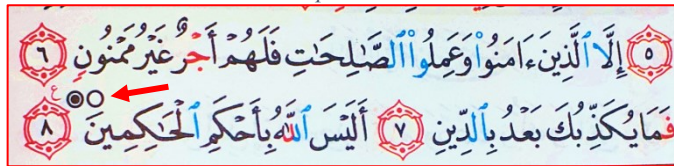 ٥ إِلَّا الَّذِينَ ءَامَنُوا وَعَمِلُوا الصَّالِحَاتِ فَلَهُمْ أَجْرٌ غَيْرُ مَمْنُونٍ ٦
فَمَا يُكَذِّبُكَ بَعْدُ بِالدِّينِ ٧ أَلَيْسَ اللَّهُ بِأَحْكَمِ الْحَاكِمِينَ ٨ ع